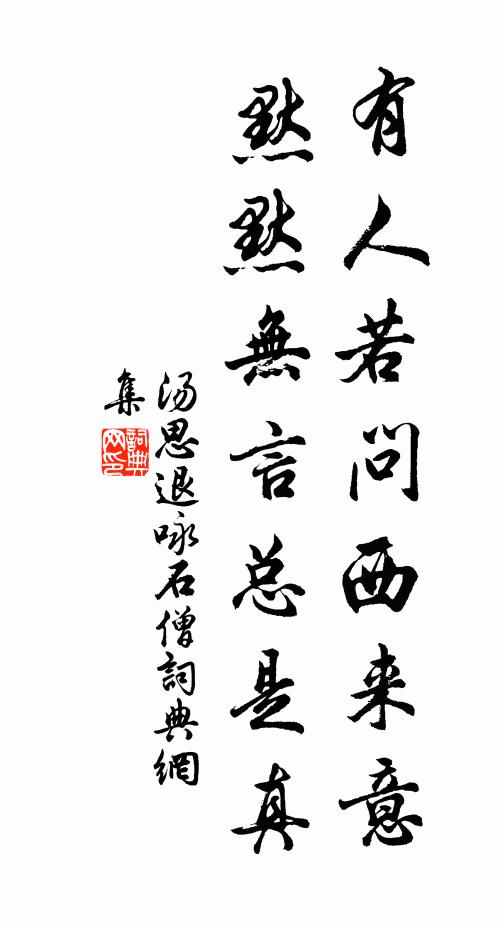 有人若问西来意
默默無言总是真
汤思退咏石僧詞典網
集
詞典
网印